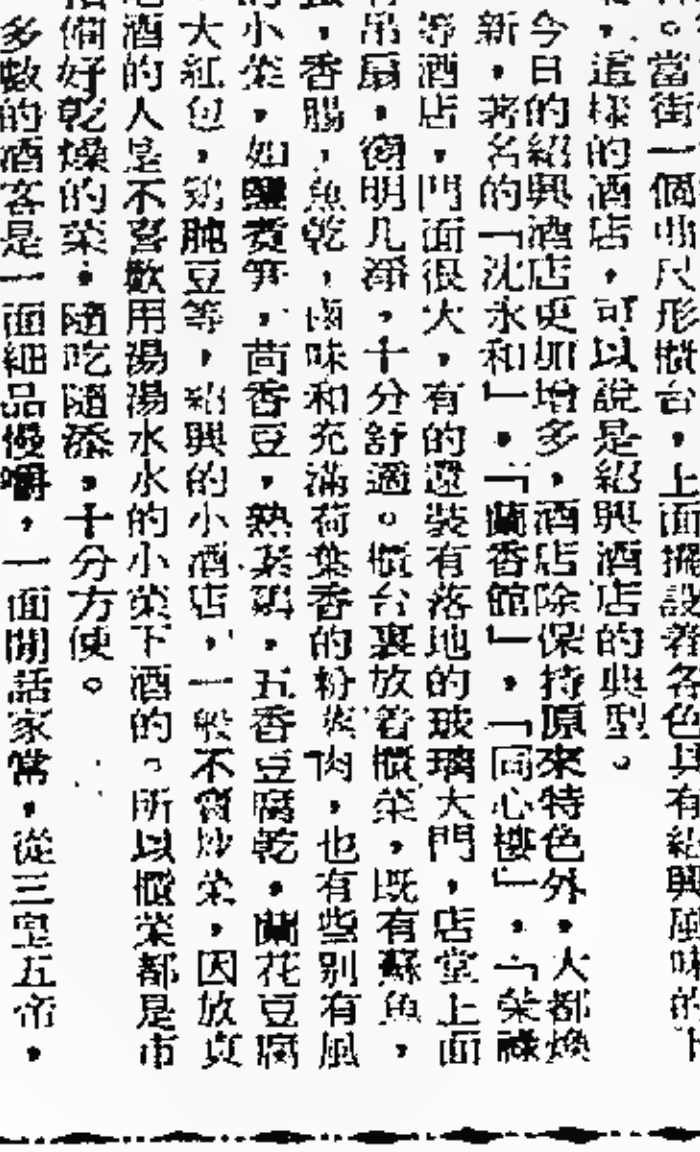 。當街一個曲尺形櫃台，上面擺設着各色具有紹興風味的下
，這樣的酒店，可以說是紹興酒店的典型。
今日的紹興酒店更加增多，酒店除保持原來特色外，大都煥
新，著名的「沈永和」，「蘭香館」，「同心樓」，「榮祿
等酒店，門面很大，有的還裝有落地的玻璃大門，店堂上面
吊扇，窗明几淨，十分舒適。櫃台裏放着櫃菜，既有蘇魚，
，香腸，魚乾，鹵味和充滿荷葉香的粉蒸肉，也有些別有風
小菜，如鹽煮筍，茴香豆，熟菜鷄，五香豆腐乾，蘭花豆腐
，大紅包，鷄肫豆等，紹興的小酒店，一般不賣炒菜，因放真
酒的人是不喜歡用湯湯水水的小菜下酒的。所以櫃菜都是市
備好乾燥的菜，隨吃隨添，十分方便。
多數的酒客是一面細品慢嚼，一面閒話家常，從三皇五帝，